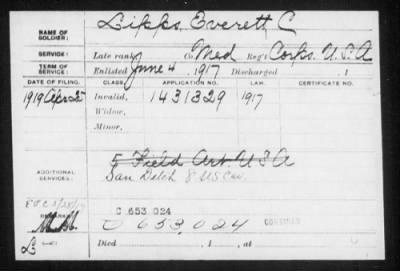 NAME OF SOLDIER: Lipps, Everett C
SERVICE: Late rank, Co. Med Reg't Corps. U.S.A
TERM OF SERVICE: Enlisted June 4, 1917 Discharged , 1
DATE OF FILING. CLASS. APPLICATION NO. LAW. CERTIFICATE NO.
1919 Apr 25 Invalid, 1431329 1917
Widow,
Minor,
5 Field Art. U S A
ADDITIONAL SERVICES: San Detch 8 US Cav.
REMARKS:
C 653 024
C 653,024
Died , 1 , at